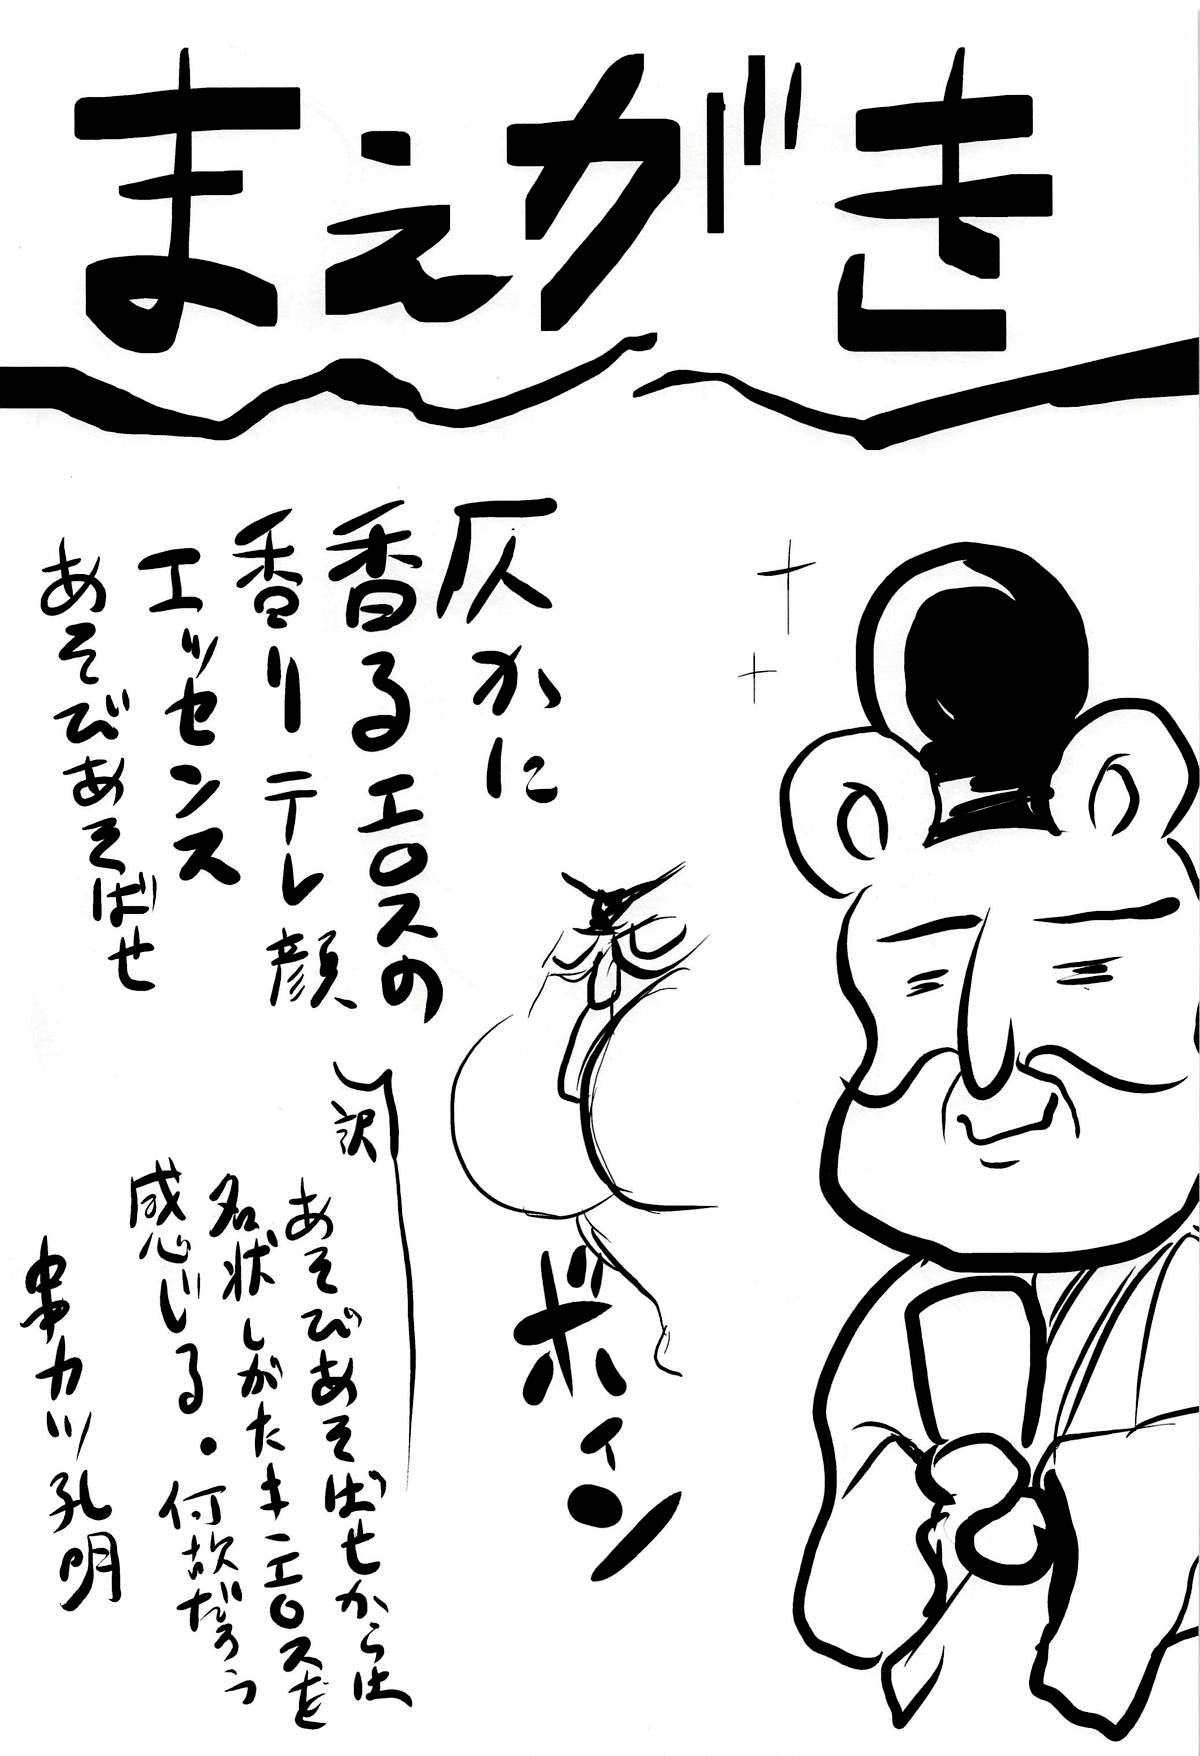 まえがき
仄かに
香るエロスの
香りテレ顔
エッセンス
あそびあそばせ
ボイン
訳
あそびあそばせからは
名状しがたきエロスを
感じる。何故だろう
串カツ孔明